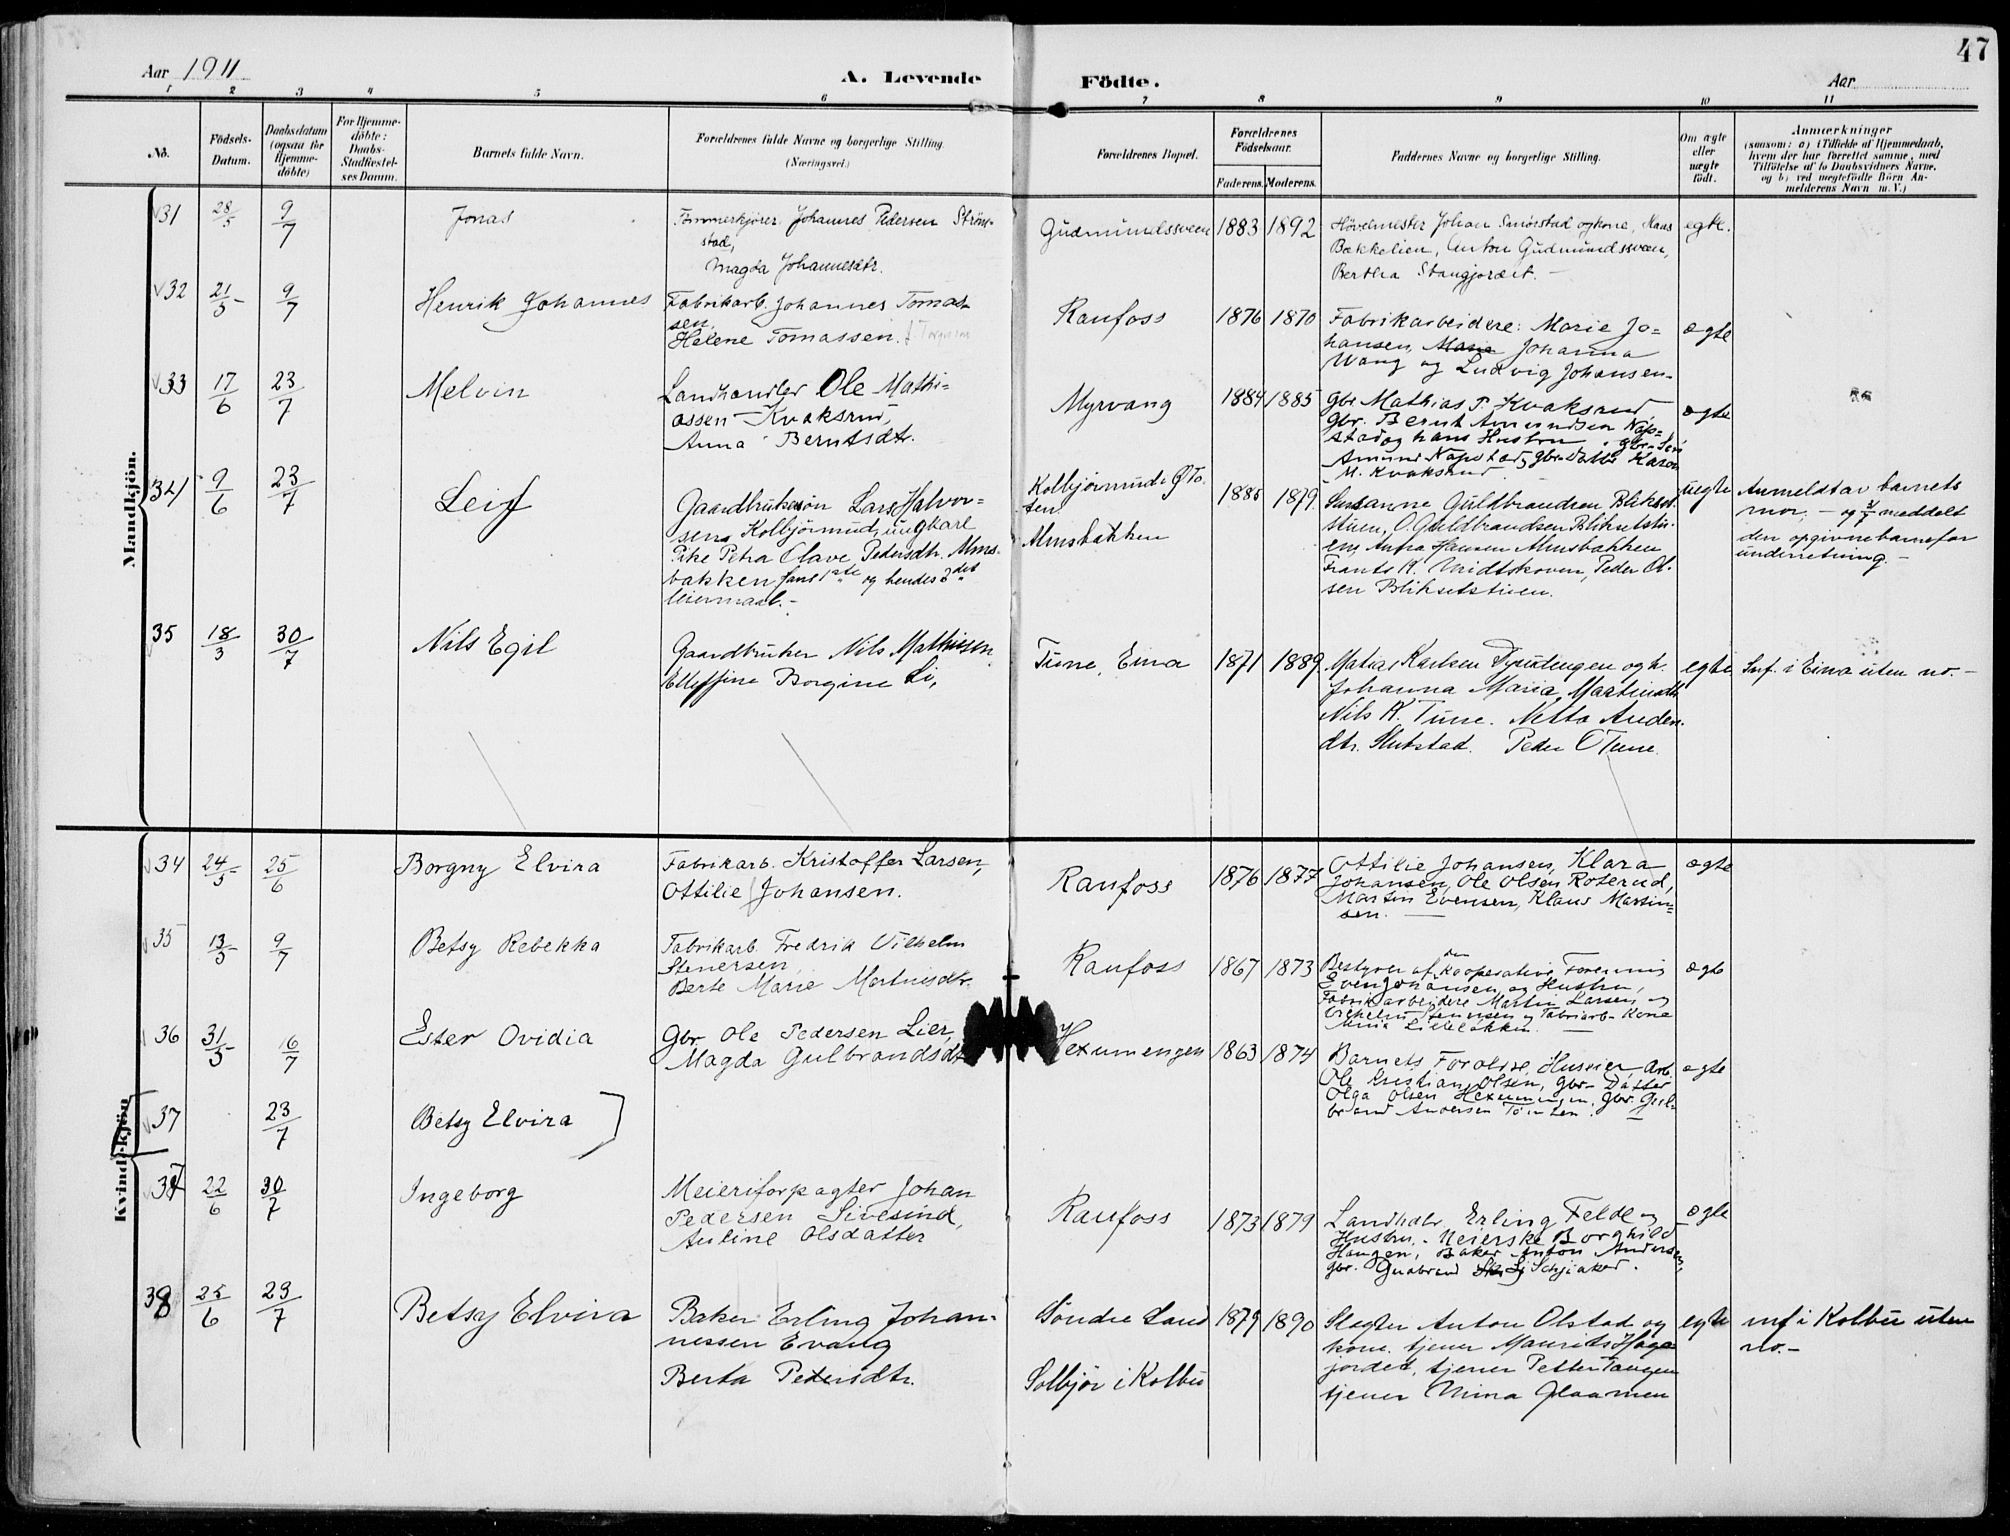 47
Aar 1911
A. Levende Födte.
Aar
1 2 3 4 5 6 7 8 9 10 11
No.
Födsels-
Datum.
Daabsdatum
(ogsaa for
Hjemme-
döbte)
For Hjemme-
döbte:
Daabs-
Stadfæstel-
ses Datum.
Barnets fulde Navn.
Forældrenes fulde Navne og borgerlige Stilling
(Næringsvei.)
Forældrenes Bopæl.
Forældrenes
Födselsaar.
Faderens. Moderens.
Faddernes Navne og borgerlige Stilling.
Om ægte
eller
uægte
født.
Anmærkninger
(saasom: a) i Tilfælde af Hjemmedaab,
hvem der har forrettet samme, med
Tilföielse af to Daabsvidners Navne.
og b) ved uægtefödte Börn An-
melderens Navn m. V.)
Mandkjön.
31 28/5 9/7 Jonas
Tømmerkjører Johannes Pedersen Ström-
stad,
Magda Johannesdtr.
Gudmundssveen 1883 1892
Høvelmester Johan Smörstad og kone, Hans
Bakkelien, Anton Gudmundssveen,
Bertha Stangjordet.
egte.
32 21/5 9/7 Henrik Johannes
Fabrikarb. Johannes Tomas-
sen,
Helene Tomassen.
Raufoss 1876 1870
Fabrikarbeidere: Marie Jo-
hansen, Johanna
Wang og Ludvig Johansen
ægte
33 17/6 23/7 Melvin
Landhandler Ole Mathi-
assen Kvaksrud,
Anna Berntsdtr.
Myrvang 1884 1885
gbr Mathias P. Kvaksrud,
gbr. Bernt Amundsen Nøp-
stad og hans Hustru, gbr-Søn
Amund Napstad, gbr-datter Karen
M. Kvaksrud
ægte
34 9/6 23/7 Leif
Gaardbrukersøn Lars Halvor-
sen Kolbjörnrud, ungkarl
Pike Petra Olave Pedersdtr. Alms-
bakken hans 1ste og hendes 2det
leiermaal.-
Kolbjörnrud i Ø To-
ten
Almsbakken
1885 1879
Susanne Guldbrandsen Blikset-
stuen, O. Guldbrandsen Blikset-
en, Anna Hansen Almsbakken
Frants K. Midtskoven, Peder Ol-
sen Bliksetstuen.
uegte
Anmeldt av barnets
mor, - og 3/7 meddelt
den opgivne barnefar
underretning.-
35 18/3 30/7 Nils Egil
Gaardbruker Nils Mathisen
Borgine Li,
Tune, Eina 1871 1889
Matias Karlsen og h.
Johanna Maria Martinsdtr
Nils K. Tune. Netta Anders-
dtr. Slutstad. Peder O Tune.
egte
Inf. i Eina uten no.-
Kvindekjön
34 24/5 25/6 Borgny Elvira
Fabrikarb. Kristoffer Larsen,
Ottilie Johansen.
Raufoss 1876 1877
Ottilie Johansen, Klara
Johansen, Ole Olsen Roterud,
Martin Evensen, Klaus Martin-
sen.
ægte
35 13/5 9/7 Betsy Rebekka
Fabrikarb. Fredrik Vilhelm
Stenersen,
Berte Marie Martinsdtr.
Raufoss 1867 1873
Bestyrer af den Kooperative Forening
Even Johansen og Hustru,
Fabrikarbeidere Martin Larsen og
Vilhelm Stenersen og Fabriarb- Kone
Mina Lillebakken.
ægte
36 31/5 16/7 Ester Ovidia
Gbr Ole Pedersen Lier,
Magda Gulbrandsdtr
Hexumengen 1863 1874
Barnets Forældre, Husmier, Arb.
Ole Kristian Olsen, gbr- Datter
Olga Olsen Hexumengen, gbr. Gul-
brand Andersen
ægte
37 23/7 Betsy Elvira
37 22/6 30/7 Ingeborg
Meieriforpagter Johan
Pedersen Sivesind,
Auline Olsdatter
Raufoss 1873 1879
Landhdlr Erling Felde og
Hustru. - Meierske Borghild
Haugen, Baker Anton Andersen,
gbr. Gudbrand Schjiaker.
ægte
38 25/6 23/7 Betsy Elvira
Baker Erling Johan-
nessen Evang
Berta Pedersdtr.
Söndre Land
Solbjör i Kolbu
1879 1890
Slagter Anton Olstad og
kone, tjener Maurits Haga-
jordet, tjener Petter Haugen
tjener Mina Glaamen
egte
inf i Kolbu uten
no.-